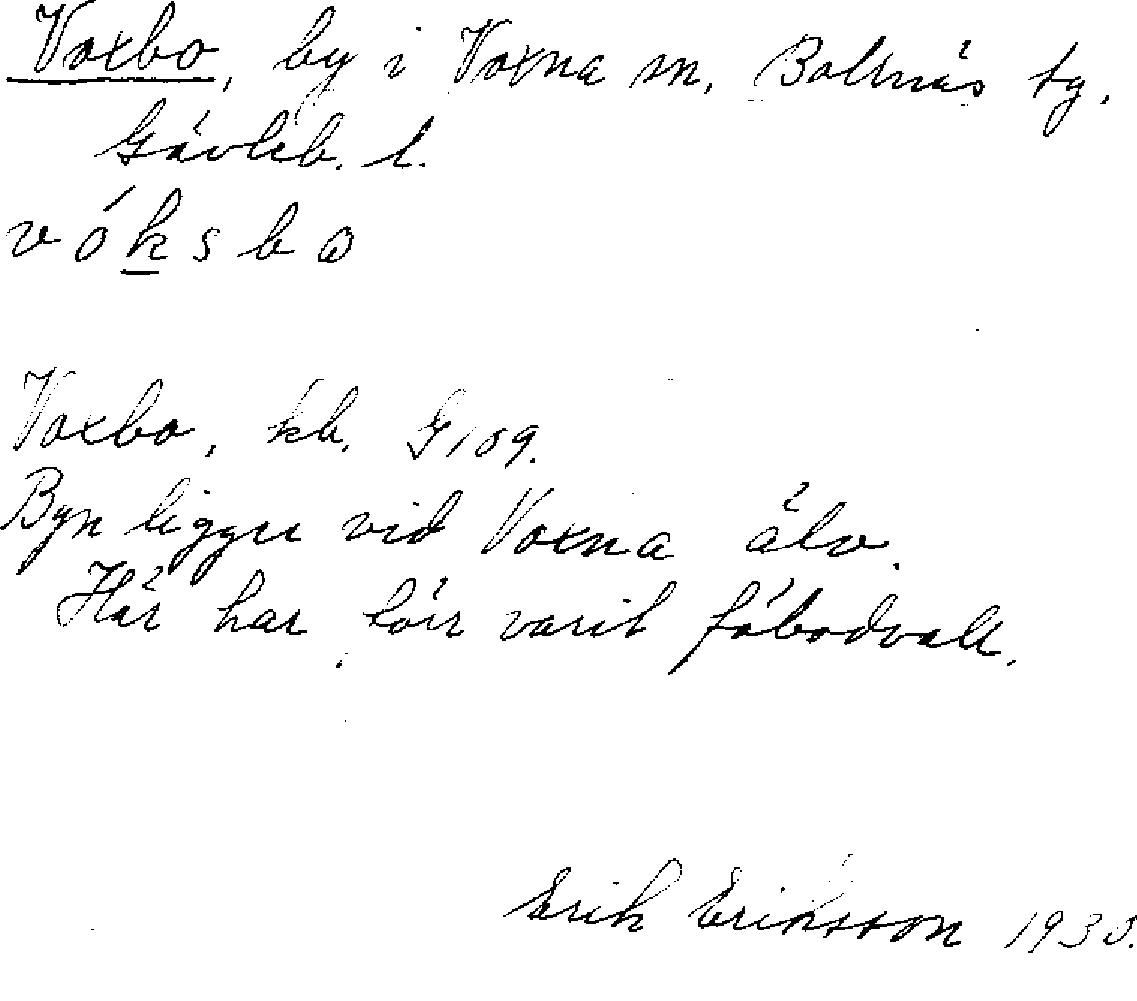 Voxbo, by i Voxna sn, Bollnäs tg.
Gävleb. l.
vóksbo
Voxbo, kb. G109.
Byn ligger vid Voxna älv.
Här har förr varit fäbodvall.
Erik Eriksson 1930.